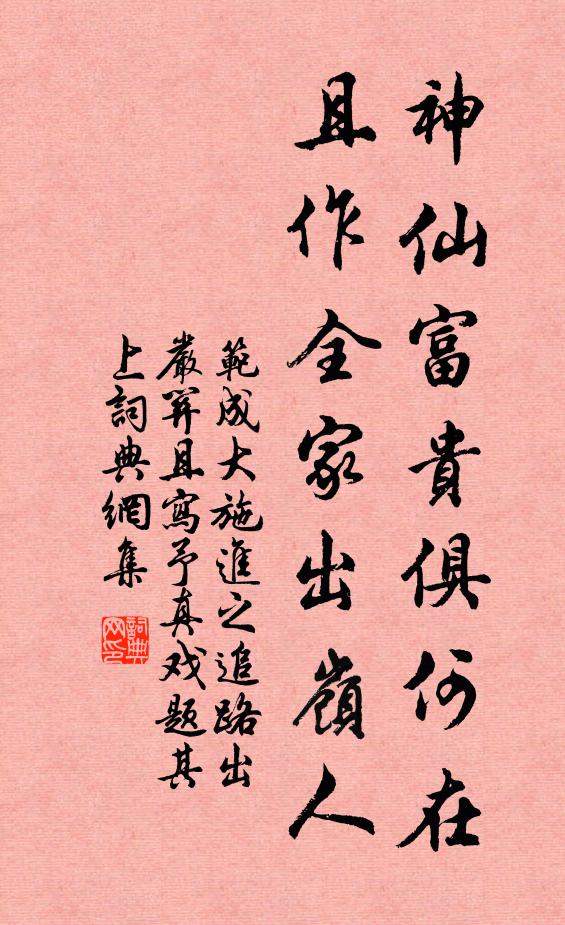 神仙富貴俱何在
且作全家出嶺人
範成大施進之追路出
嚴關且寫予真戏題其
上詞典網集
詞典
网印